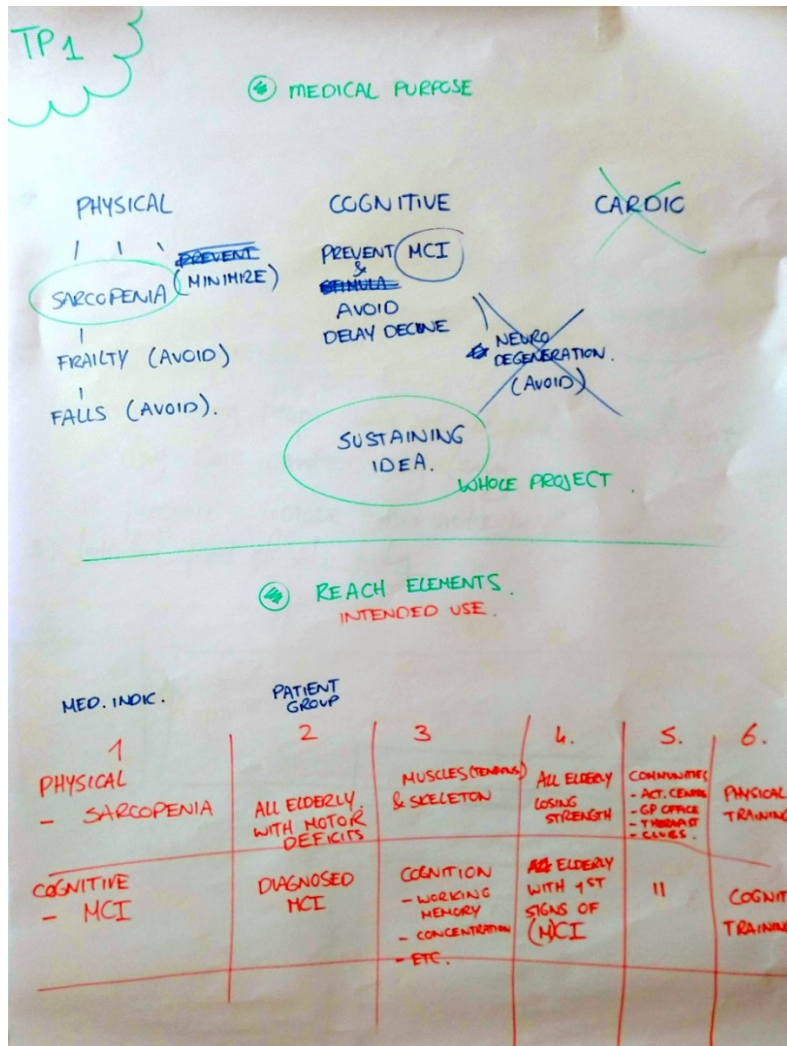 TP1
MEDICAL PURPOSE
PHYSICAL
COGNITIVE
CARDIC
PREVENT
SARCOPENIA (MINIMIZE)
FRAILTY (AVOID)
FALLS (AVOID).
PREVENT MCI
&
STIMULA
AVOID
DELAY DECLINE
NEURO
DEGENERATION.
(AVOID)
SUSTAINING
IDEA.
WHOLE PROJECT.
REACH ELEMENTS.
INTENDED USE.
MED. INDIC.
PATIENT
GROUP
1
2
3
4.
5.
6.
PHYSICAL
- SARCOPENIA
ALL ELDERLY.
WITH MOTOR
DEFICITS
MUSCLES (TENDONS)
& SKELETON
ALL ELDERLY
LOSING
STRENGTH
COMMUNITIES
- ACT. CENTRE
- GP OFFICE
- THERAPIST
- CLUBS.
PHYSICAL
TRAINING
COGNITIVE
- MCI
DIAGNOSED
MCI
COGNITION
- WORKING
MEMORY
- CONCENTRATION
- ETC.
ALL ELDERLY
WITH 1ST
SIGNS OF
(M)CI
"
COGNIT
TRAINING